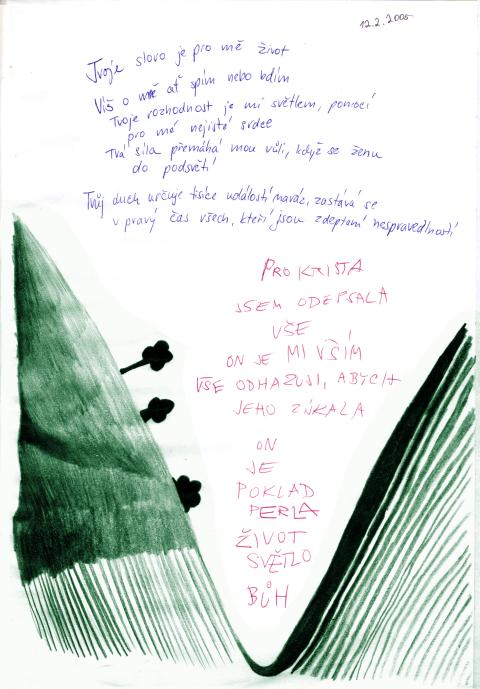 12.2.2005
Tvoje slovo je pro mě život
Víš o mě ať spím nebo bdím
Tvoje rozhodnost je mi světlem, pomocí
pro mé nejisté srdce
Tvá síla přemáhá mou vůli, když se ženu
do podsvětí
Tvůj duch určuje tisíce událostí naráz, zastává se
v pravý čas všech, kteří jsou zdeptaní nespravedlností
PRO KRISTA
JSEM ODEPSALA
VŠE
ON JE MI VŠÍM
VŠE ODHAZUJI, ABYCH
JEHO ZÍSKALA
ON
JE
POKLAD
PERLA
ŽIVOT
SVĚTLO
BŮH